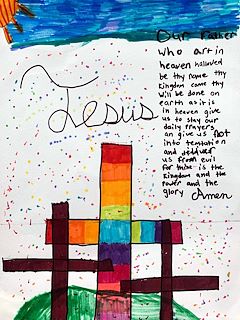 Our Father
who art in
heaven hallowed
be thy name thy
kingdom come thy
will be done on
earth as it is
in heaven give
us to stay our
daily prayers
an give us not
into temtation
and deliver
us from evil
for thine is the
kingdom and the
power and the
glory Amen
Jesus